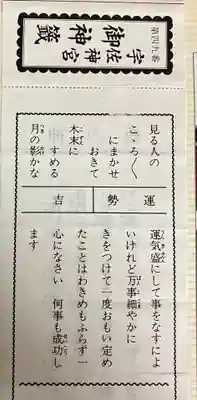 第四九番
宇佐神宮
御神籤
見る人の
こゝろ〱
にまかせ
おきて
木末に
すめる
月の影かな
運勢
吉
運気盛にして事をなすによ
いけれど万事細やかに
きをつけて一度おもい定め
たことはわきめもふらず一
心になさい 何事も成功し
ます